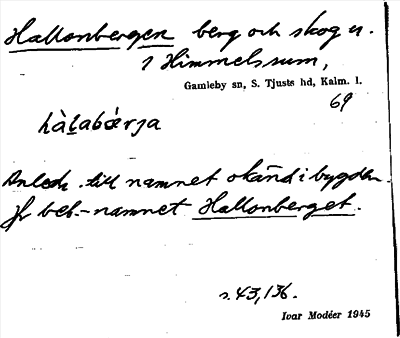 Hallonbergen berg och skog n.
i Himmelssum,
Gamleby sn, S. Tjusts hd, Kalm. l.
69
hàlabǿrja
Anledn. till namnet okänd i bygden.
Jfr beb.-namnet Hallonberget.
s. 43, 136.
Ivar Modéer 1945